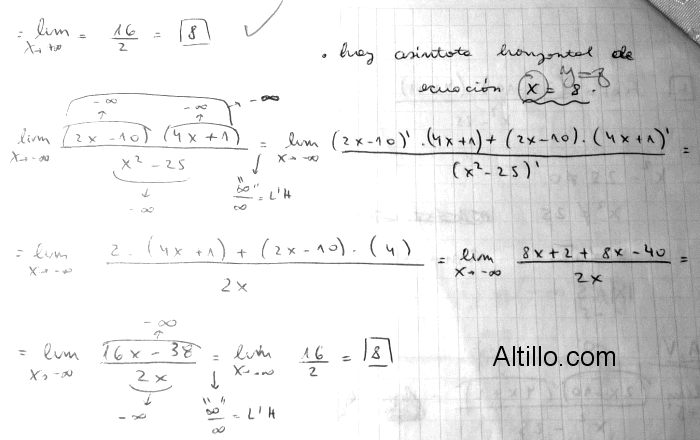 = lim x→+∞ = 16/2 = 8 ✓
• hay asíntota horizontal de
ecuación x = 8. y=8
-∞ -∞ → -∞
lim x→-∞ (2x-10) (4x+1) / x²-25 = lim x→-∞ (2x-10)' . (4x+1) + (2x-10) . (4x+1)' / (x²-25)' =
-∞ "∞"/∞ = L'H
= lim x→-∞ 2 . (4x+1) + (2x-10) . (4) / 2x = lim x→-∞ 8x+2+8x-40 / 2x =
-∞
= lim x→-∞ 16x-38 / 2x = lim x→-∞ 16/2 = 8
-∞ "∞"/∞ = L'H
Altillo.com